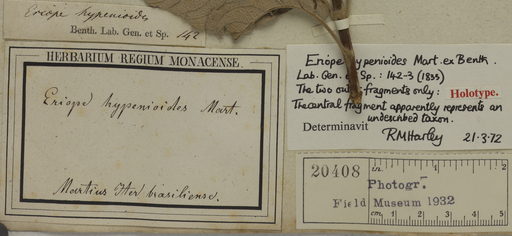 Eriope hypenioides
Benth. Lab. Gen. et Sp. 142
HERBARIUM REGIUM MONACENSE.
Eriope hypenioides Mart.
Martius Iter brasiliense.
Eriope hypenioides Mart. ex Benth.
Lab. Gen. et Sp.: 142-3 (1833)
The two outer fragments only: Holotype.
The central fragment apparently represents an
undescribed taxon.
Determinavit RMHarley 21.3.72
20408
in. 1 2
Photogr.
Field Museum 1932
cm. 1 2 3 4 5